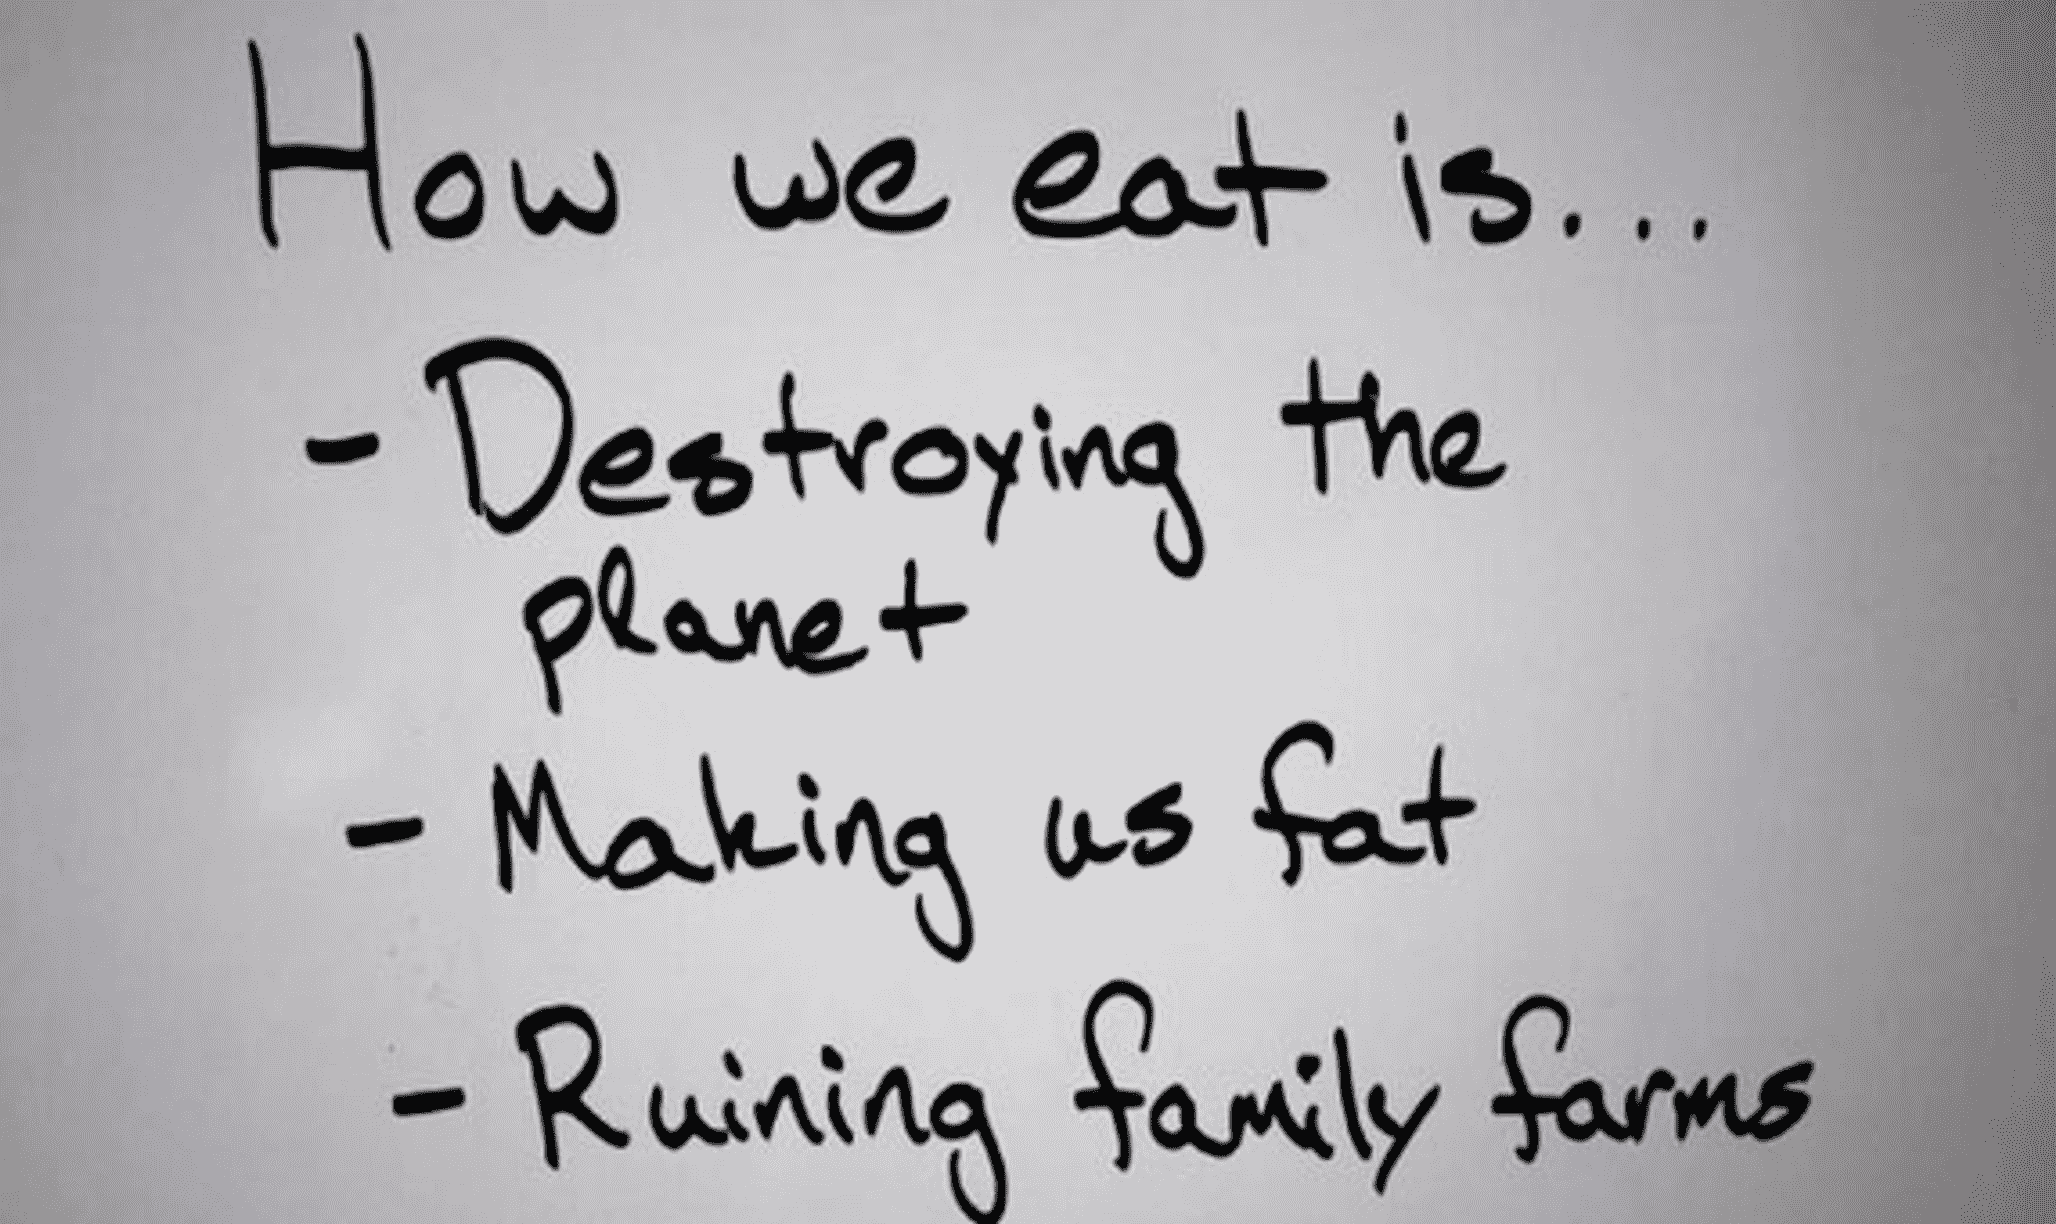 How we eat is...
- Destroying the
planet
- Making us fat
- Ruining family farms